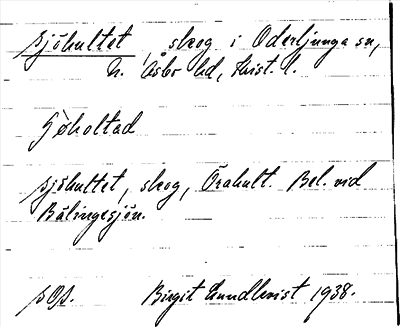 Sjöhultet, skog i Oderljunga sn,
N. Åsbo hd, Krist. l.
Sjöhultet, skog, Örahult. Bel. vid
Bälingesjön.
SOP.
Birgit Lundkvist 1938.